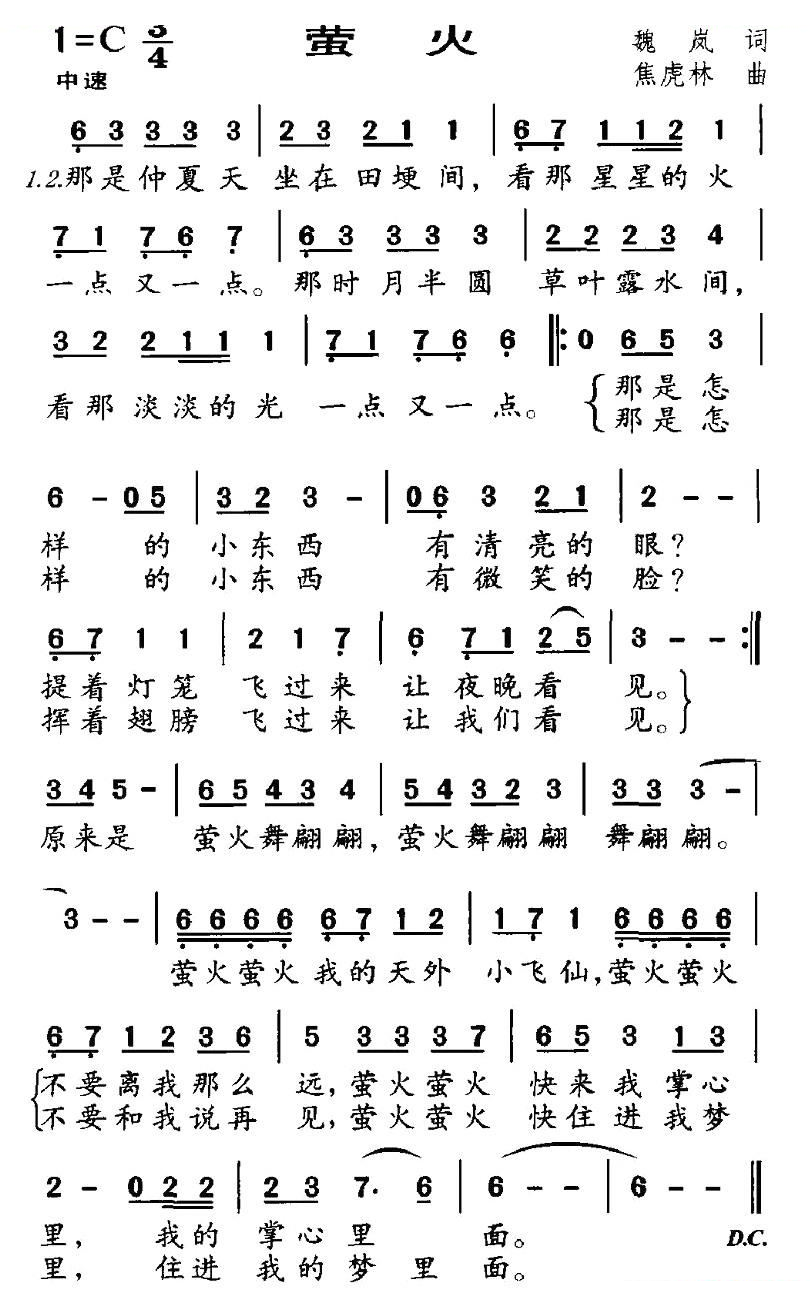 1=C 3/4 萤 火 魏 岚 词
中速 焦虎林 曲
6 3 3 3 3 | 2 3 2 1 1 | 6 7 1 1 2 1 |
1.2.那是仲夏天 坐在田埂间，看那星星的火
7 1 7 6 7 | 6 3 3 3 3 | 2 2 2 3 4 |
一点又一点。那时月半圆 草叶露水间，
3 2 2 1 1 1 | 7 1 7 6 6 ‖: 0 6 5 3 |
看那淡淡的光 一点又一点。 那是怎
那是怎
6 - 0 5 | 3 2 3 - | 0 6 3 2 1 | 2 - - |
样 的 小东西 有清亮的 眼？
样 的 小东西 有微笑的 脸？
6 7 1 1 | 2 1 7 | 6 7 1 2 5 | 3 - - :‖
提着灯笼 飞过来 让夜晚看 见。
挥着翅膀 飞过来 让我们看 见。
3 4 5 - | 6 5 4 3 4 | 5 4 3 2 3 | 3 3 3 - |
原来是 萤火舞翩翩，萤火舞翩翩 舞翩翩。
3 - - | 6 6 6 6 6 7 1 2 | 1 7 1 6 6 6 6 |
萤火萤火我的天外 小飞仙，萤火萤火
6 7 1 2 3 6 | 5 3 3 3 7 | 6 5 3 1 3 |
不要离我那么 远，萤火萤火 快来我掌心
不要和我说再 见，萤火萤火 快住进我梦
2 - 0 2 2 | 2 3 7· 6 | 6 - - | 6 - - ‖
里， 我的 掌心里 面。 D.C.
里， 住进 我的梦里 面。